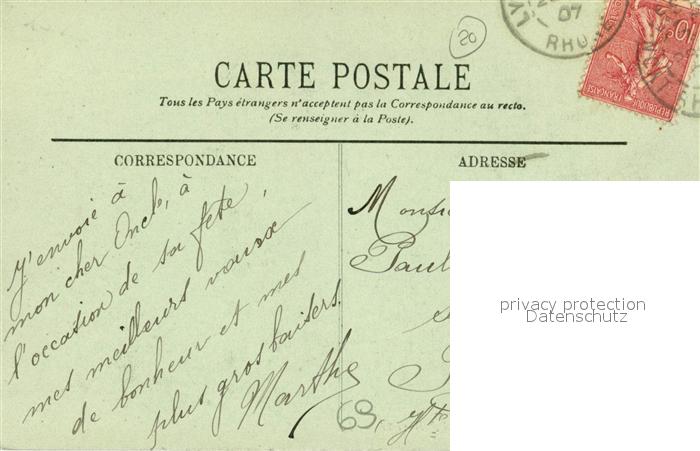 20
LY
07
RHÔ
10
RÉPUBLIQUE FRANÇAISE
CARTE POSTALE
Tous les Pays étrangers n'acceptent pas la Correspondance au recto.
(Se renseigner à la Poste).
CORRESPONDANCE
J'envoie à
mon cher Oncle, à
l'occasion de sa fête,
mes meilleurs vœux
de bonheur et mes
plus gros baisers.
Marthe
69
ADRESSE
Monsi
Paul
privacy protection
Datenschutz